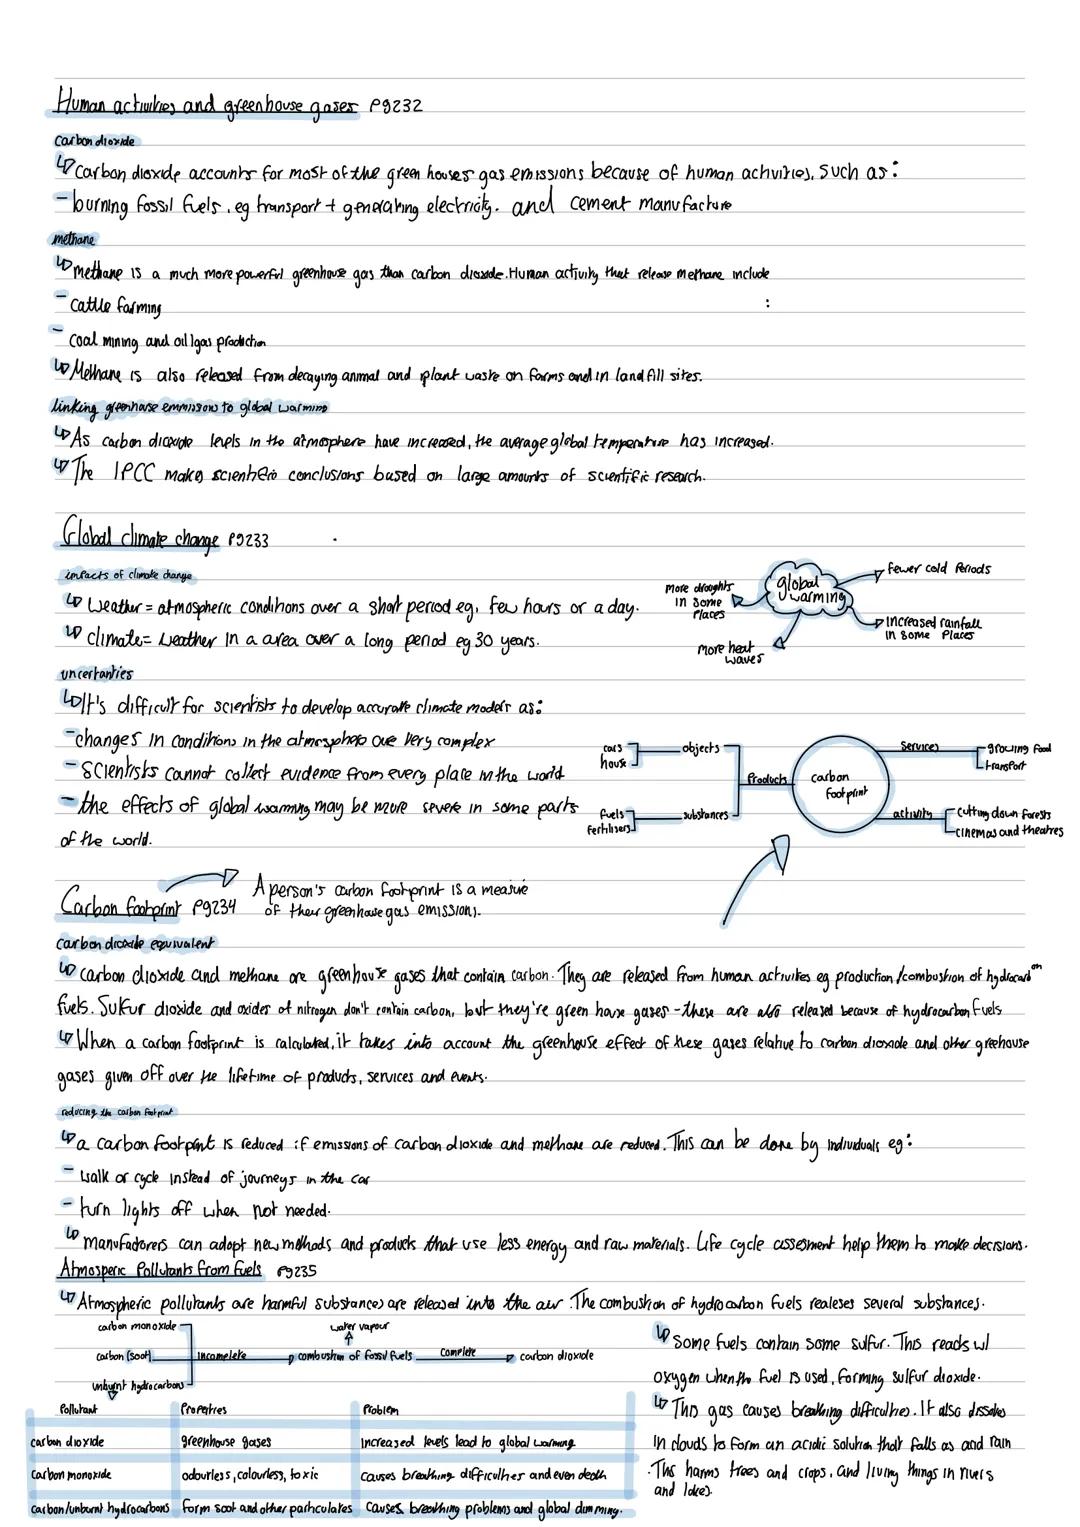 Human activities and greenhouse gases Pg232
carbon dioxide
↳ carbon dioxide accounts for most of the green houses gas emissions because of human activities, such as:
- burning fossil fuels, eg transport + generating electricity. and cement manufacture
methane
↳ methane is a much more powerful greenhouse gas than carbon dioxide. Human activity that release methane include
:
- cattle farming
- coal mining and oil/gas production
↳ Methane is also released from decaying animal and plant waste on farms and in land fill sites.
linking greenhouse emmissions to global warming
↳ As carbon dioxide levels in the atmosphere have increased, the average global temperature has increased.
↳ The IPCC makes scientific conclusions based on large amounts of scientific research.
Global climate change Pg233
impacts of climate change
↳ Weather = atmospheric conditions over a short period eg, few hours or a day.
↳ climate = weather in a area over a long period eg 30 years.
global warming
fewer cold periods
increased rainfall in some places
more heat waves
more droughts in some places
uncertanties
↳ It's difficult for scientists to develop accurate climate models as:
- changes in conditions in the atmosphere are very complex
- scientists cannot collect evidence from every place in the world
- the effects of global warming may be more severe in some parts
of the world.
cars
house
objects
fuels
fertilisers
substances
Products
carbon footprint
services
growing food
transport
activity
cutting down forests
cinemas and theatres
Carbon footprint Pg234
A person's carbon footprint is a measure
of their greenhouse gas emissions.
carbon dioxide equivalent
↳ carbon dioxide and methane are greenhouse gases that contain carbon. They are released from human activities eg production/combustion of hydrocarbon
fuels. Sulfur dioxide and oxides of nitrogen don't contain carbon, but they're green house gases - these are also released because of hydrocarbon fuels
↳ When a carbon footprint is calculated, it takes into account the greenhouse effect of these gases relative to carbon dioxide and other greehouse
gases given off over the lifetime of products, services and events.
reducing the carbon footprint
↳ a carbon footprint is reduced if emissions of carbon dioxide and methane are reduced. This can be done by individuals eg:
- walk or cycle instead of journeys in the car
- turn lights off when not needed.
↳ manufactorers can adopt new methods and products that use less energy and raw materials. Life cycle assesment help them to make decisions.
Atmosperic Pollutants from fuels Pg235
↳ Atmospheric pollutants are harmful substances are released into the air. The combustion of hydrocarbon fuels realeses several substances.
carbon monoxide
carbon (soot)
unburnt hydrocarbons
incomelete
combustion of fossil fuels
water vapour
complete
carbon dioxide
Pollutant Properties Problem
carbon dioxide greenhouse gases increased levels lead to global warming
carbon monoxide odourless, colourless, toxic causes breathing difficulties and even death
carbon/unburnt hydrocarbons form soot and other particulates causes breathing problems and global dimming.
↳ Some fuels contain some sulfur. This reacts w/
oxygen when the fuel is used, forming sulfur dioxide.
↳ This gas causes breathing difficulties. It also dissolves
in clouds to form an acidic solution that falls as acid rain
. This harms trees and crops, and living things in rivers
and lakes.